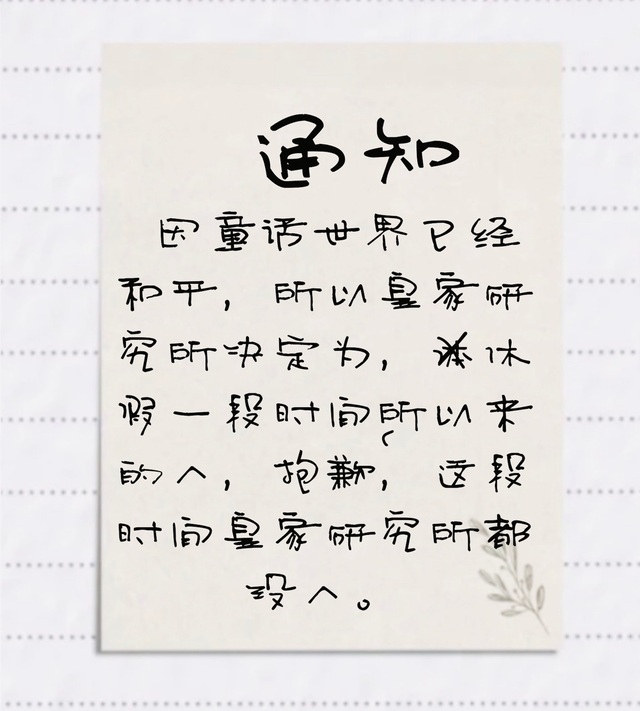 通知
因童话世界已经
和平，所以皇家研
究所决定为，休
假一段时间，所以来
的人，抱歉，这段
时间皇家研究所都
没人。